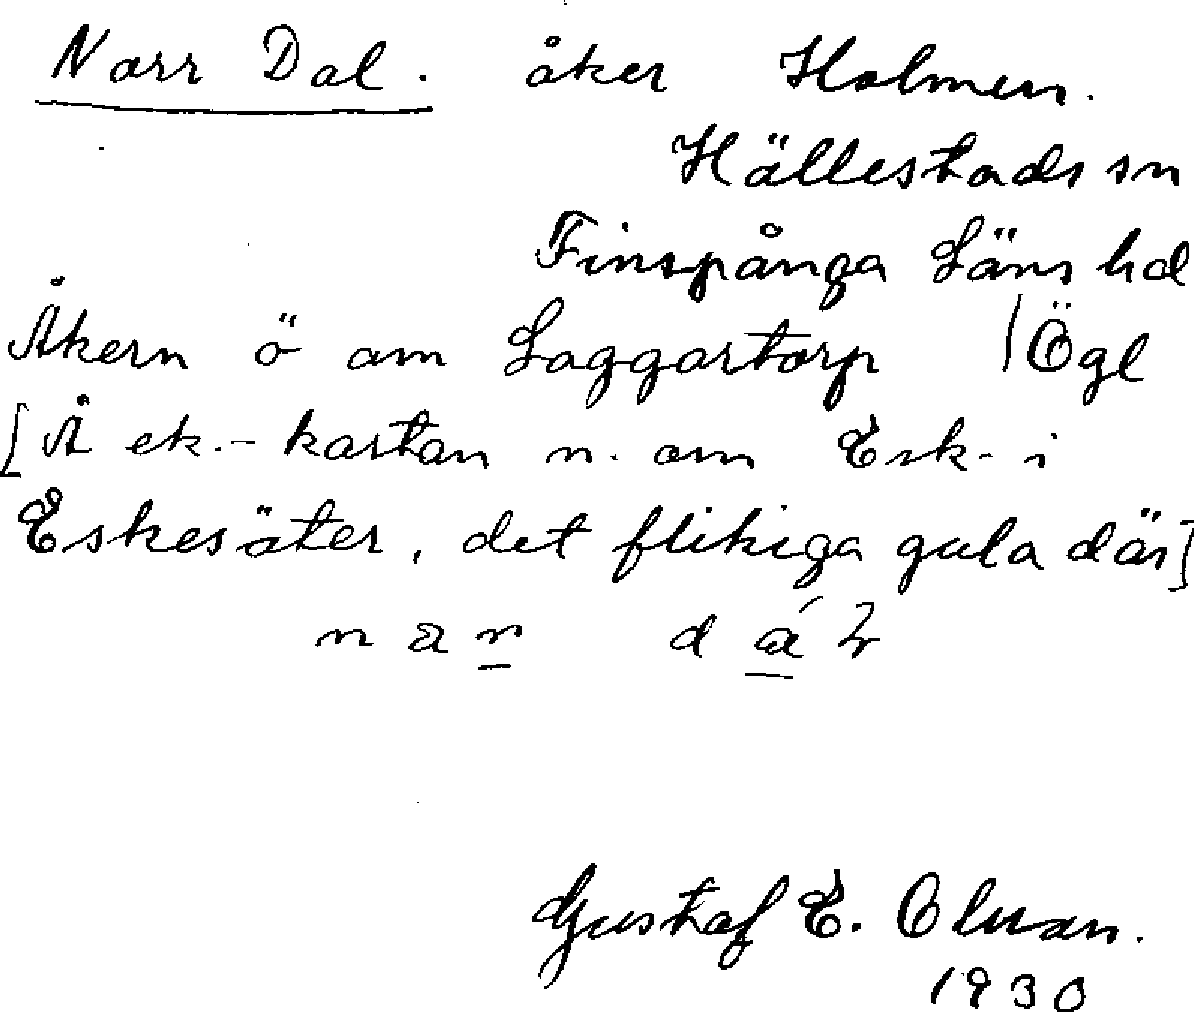 Norr Dal. åker Holmen.
Hällestads sn
Finspånga Läns hd
Åkern ö om Laggartorp /Ögl
[Å ek.- kartan n. om Esk- i
Eskesäter, det flikiga gula där]
n a r d á
Gustaf E. Olsson.
1930